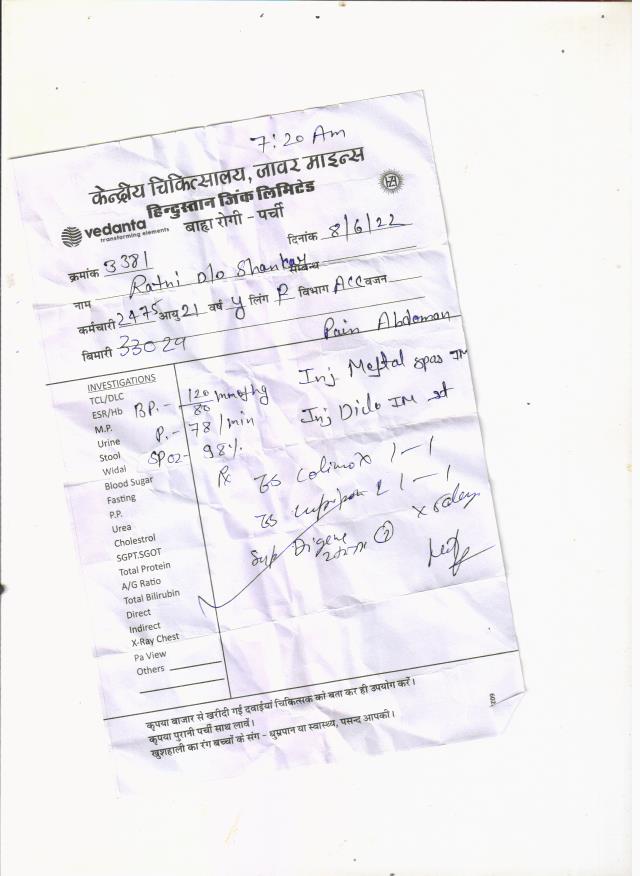 7:20 Am
केन्द्रीय चिकित्सालय, जावर माइन्स
हिन्दुस्तान जिंक लिमिटेड
vedanta
transforming elements
बाह्य रोगी - पर्ची
दिनांक 8/6/22
क्रमांक 3381
नाम Ratni D/o Shankar सम्बन्ध
कर्मचारी 2475 आयु 21 वर्ष y लिंग F विभाग ACC वजन
बिमारी 33029
Pain Abdoman
INVESTIGATIONS
TCL/DLC
ESR/Hb
M.P.
Urine
Stool
Widal
Blood Sugar
Fasting
P.P.
Urea
Cholestrol
SGPT.SGOT
Total Protein
A/G Ratio
Total Bilirubin
Direct
Indirect
X-Ray Chest
Pa View
Others
BP.- 120/80 mmofhg
P.- 78/min
SPO2- 98%
Inj Meftal spas IM
Inj Diclo IM st
Rx
Colimex 1-1
1-1
Syp Digene
2
कृपया बाजार से खरीदी गई दवाईयां चिकित्सक को बता कर ही उपयोग करें।
कृपया पुरानी पर्ची साथ लावें।
खुशहाली का रंग बच्चों के संग - धुम्रपान या स्वास्थ्य, पसन्द आपकी।